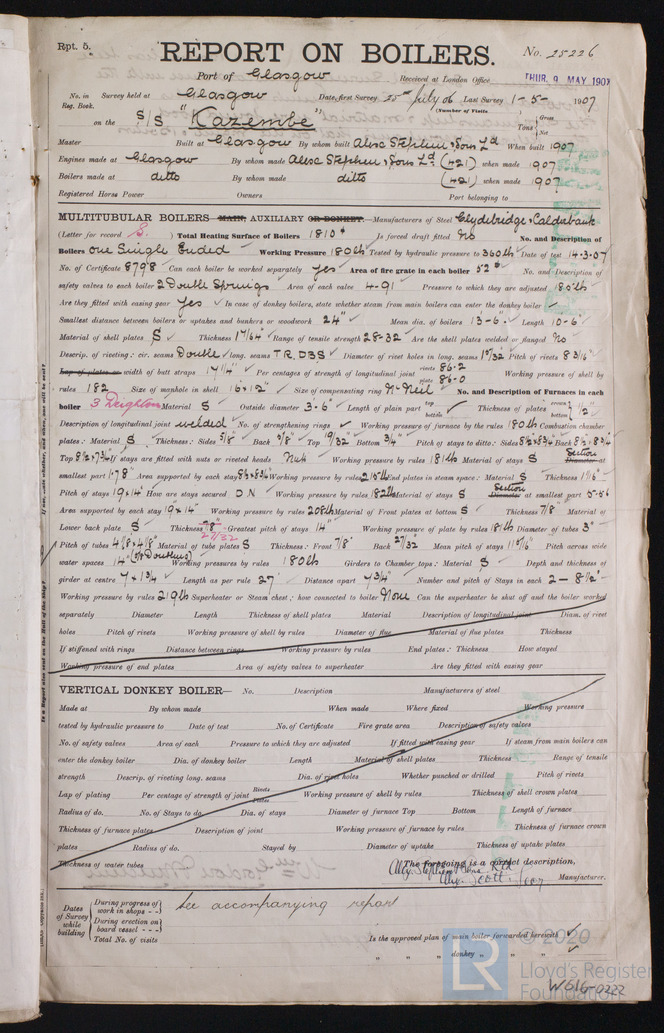 Rpt. 5.
REPORT ON BOILERS.
No. 25226
Port of Glasgow
Received at London Office THUR. 9 MAY 1907
No. in Reg. Book.
Survey held at Glasgow Date, first Survey 25th July 06 Last Survey 1-5-1907
(Number of Visits
on the S/S "Kazembe" Tons { Gross Net
Master Built at Glasgow By whom built Alexr Stephen & Sons Ld When built 1907
Engines made at Glasgow By whom made Alexr Stephen & Sons Ld (421) when made 1907
Boilers made at ditto By whom made ditto (421) when made 1907
Registered Horse Power Owners Port belonging to
MULTITUBULAR BOILERS MAIN, AUXILIARY OR DONKEY.—Manufacturers of Steel Clydebridge & Calderbank
(Letter for record S. ) Total Heating Surface of Boilers 1810 Is forced draft fitted No No. and Description of
Boilers One Single Ended Working Pressure 180 lb Tested by hydraulic pressure to 360 lb Date of test 14-3-07
No. of Certificate 8798 Can each boiler be worked separately yes Area of fire grate in each boiler 52 No. and Description of
safety valves to each boiler 2 Double Springs Area of each valve 4.91 Pressure to which they are adjusted 185 lb
Are they fitted with easing gear Yes In case of donkey boilers, state whether steam from main boilers can enter the donkey boiler
Smallest distance between boilers or uptakes and bunkers or woodwork 24" Mean dia. of boilers 13'-6" Length 10'-6"
Material of shell plates S Thickness 1 7/64" Range of tensile strength 28-32 Are the shell plates welded or flanged No
Descrip. of riveting: cir. seams Double long. seams T.R.D.B.S Diameter of rivet holes in long. seams 1 5/32 Pitch of rivets 8 3/16"
Lap of plates or width of butt straps 17 1/4" Per centages of strength of longitudinal joint rivets 86.2 plate 86.0 Working pressure of shell by
rules 182 Size of manhole in shell 16"x12" Size of compensating ring McNeil No. and Description of Furnaces in each
boiler 3 Deighton Material S Outside diameter 3'-6" Length of plain part top bottom Thickness of plates crown bottom } 1/2"
Description of longitudinal joint welded No. of strengthening rings Working pressure of furnace by the rules 180 lb Combustion chamber
plates: Material S Thickness: Sides 5/8" Back 5/8" Top 19/32" Bottom 3/4" Pitch of stays to ditto: Sides 8 1/2 x 8 3/4 Back 8 1/2 x 8 3/4
Top 8 1/2 x 7 3/4 If stays are fitted with nuts or riveted heads Nuts Working pressure by rules 181 lb Material of stays S Section Diameter at
smallest part 1.78" Area supported by each stay 8 1/2 x 8 3/4 Working pressure by rules 215 lb End plates in steam space: Material S Thickness 1 1/16"
Pitch of stays 19 x 14" How are stays secured D N Working pressure by rules 182 lb Material of stays S Section Diameter at smallest part 5.56
Area supported by each stay 19 x 14" Working pressure by rules 208 lb Material of Front plates at bottom S Thickness 7/8" Material of
Lower back plate S Thickness 7/8" 27/32 Greatest pitch of stays 14" Working pressure of plate by rules 181 lb Diameter of tubes 3"
Pitch of tubes 4 1/8 x 4 1/8" Material of tube plates S Thickness: Front 7/8" Back 27/32" Mean pitch of stays 11 5/16" Pitch across wide
water spaces 14" (7/8 Doublings) Working pressures by rules 180 lb Girders to Chamber tops: Material S Depth and thickness of
girder at centre 7 x 1 3/4 Length as per rule 27" Distance apart 7 3/4" Number and pitch of Stays in each 2 - 8 1/2"
Working pressure by rules 219 lb Superheater or Steam chest; how connected to boiler None Can the superheater be shut off and the boiler worked
separately Diameter Length Thickness of shell plates Material Description of longitudinal joint Diam. of rivet
holes Pitch of rivets Working pressure of shell by rules Diameter of flue Material of flue plates Thickness
If stiffened with rings Distance between rings Working pressure by rules End plates: Thickness How stayed
Working pressure of end plates Area of safety valves to superheater Are they fitted with easing gear
VERTICAL DONKEY BOILER— No. Description Manufacturers of steel
Made at By whom made When made Where fixed Working pressure
tested by hydraulic pressure to Date of test No. of Certificate Fire grate area Description of safety valves
No. of safety valves Area of each Pressure to which they are adjusted If fitted with easing gear If steam from main boilers can
enter the donkey boiler Dia. of donkey boiler Length Material of shell plates Thickness Range of tensile
strength Descrip. of riveting long. seams Dia. of rivet holes Whether punched or drilled Pitch of rivets
Lap of plating Per centage of strength of joint Rivets Plates Working pressure of shell by rules Thickness of shell crown plates
Radius of do. No. of Stays to do. Dia. of stays Diameter of furnace Top Bottom Length of furnace
Thickness of furnace plates Description of joint Working pressure of furnace by rules Thickness of furnace crown
plates Radius of do. Stayed by Diameter of uptake Thickness of uptake plates
Thickness of water tubes
The foregoing is a correct description,
Alexr Stephen & Sons Ltd
Manufacturer.
Dates of Survey while building
During progress of work in shops - -
During erection on board vessel - - -
Total No. of visits
See accompanying report
Is the approved plan of main boiler forwarded herewith
" " " donkey " "
© 2020
LR
Lloyd's Register
Foundation
W616-0222